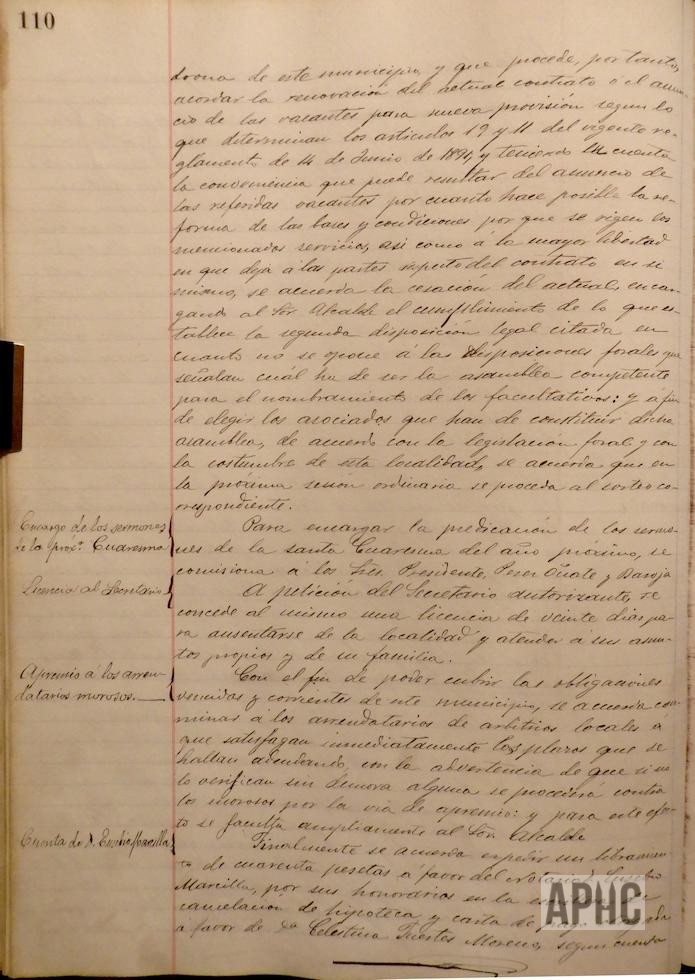 110
drona de este municipio, y que procede, por tanto,
acordar la renovación del actual contrato ó el anun-
cio de las vacantes para nueva provisión segun lo
que determinan los artículos 12 y 11 del vigente re-
glamento de 14 de Junio de 1891, y teniendo en cuenta
la conveniencia que puede resultar del anuncio de
las referidas vacantes por cuanto hace posible la re-
forma de las bases y condiciones por que se rigen los
mencionados servicios, asi como á la mayor libertad
en que deja á las partes respecto del contrato en si
mismo, se acuerda la cesación del actual, encar-
gando al Sor. Alcalde el cumplimiento de lo que es-
tablece la segunda disposición legal citada en
cuanto no se opone á las disposiciones forales que
señalan cuál ha de ser la asamblea competente
para el nombramiento de los facultativos: y á fin
de elegir los asociados que han de constituir dicha
asamblea, de acuerdo con la legislación foral y con
la costumbre de esta localidad, se acuerda que en
la próxima sesion ordinaria se proceda al sorteo co-
rrespondiente.
Encargo de los sermones
de la próxª. Cuaresma
Para encargar la predicación de los sermo-
nes de la santa Cuaresma del año próximo, se
comisiona á los Sres. Presidente, Oñate y Baroja
Licencia al Secretario
A petición del Secretario autorizante, se
concede al mismo una licencia de veinte dias pa-
ra ausentarse de la localidad y atender á sus asun-
tos propios y de su familia.
Apremio á los arren-
datarios morosos.
Con el fin de poder cubrir las obligaciones
vencidas y corrientes de este municipio, se acuerda con-
minar á los arrendatarios de arbitrios locales á
que satisfagan inmediatamente los plazos que se
hallan adeudando, con la advertencia de que si no
lo verifican sin demora alguna se procederá contra
los morosos por la via de apremio: y para este efec-
to se faculta ampliamente al Sor. Alcalde
Cuenta de D. Marcilla
Finalmente se acuerda expedir un libramien-
to de cuarenta pesetas á favor del Notario D.
Marcilla, por sus honorarios en la
cancelación de hipoteca y carta de pago
á favor de Dª Celestina Fuertes Moreno, segun cuenta
APHC